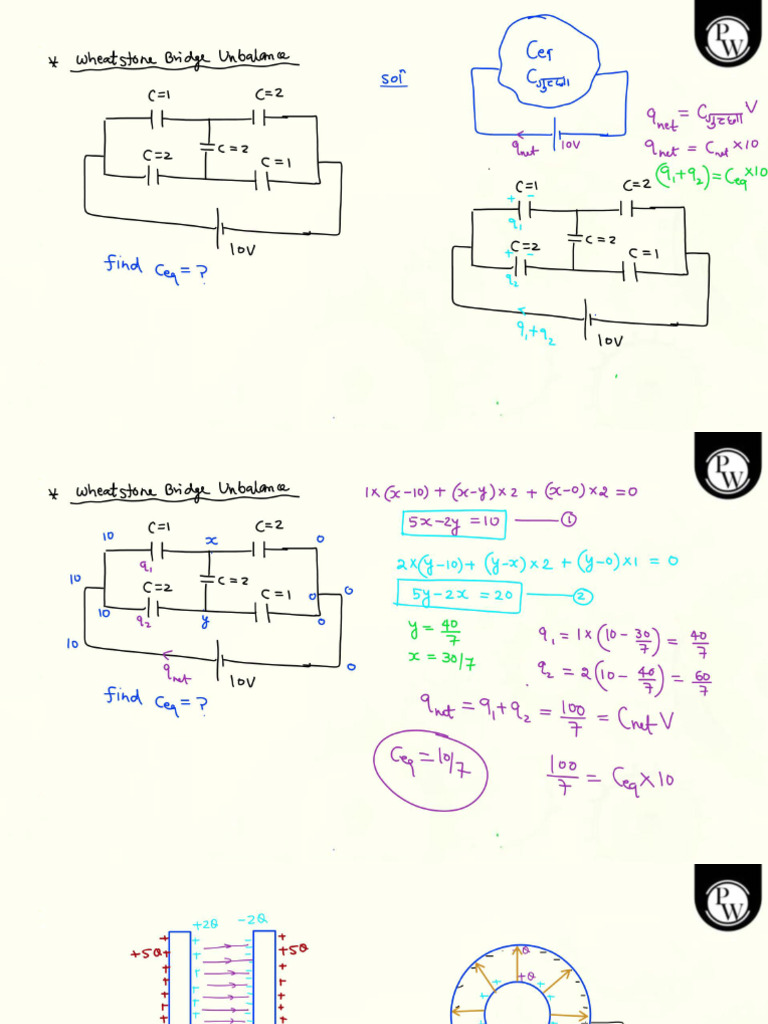 P
W
* Wheatstone Bridge Unbalance
C=1
C=2
C=2
C=2
C=1
10V
find Ceq = ?
Solⁿ
Ceq
qnet
10V
qnet = Cnet × 10
(q₁+q₂) = Ceq × 10
C=1
C=2
+ −
q₁
C=2
+ −
C=2
C=1
q₂
q₁+q₂
10V
P
W
* Wheatstone Bridge Unbalance
10
C=1
x
C=2
0
q₁
10
C=2
C=2
C=1
0
0
10
q₂
y
0
10
qnet
10V
0
find Ceq = ?
1×(x−10) + (x−y)×2 + (x−0)×2 = 0
5x−2y = 10 —— ①
2×(y−10) + (y−x)×2 + (y−0)×1 = 0
5y−2x = 20 —— ②
y = 40/7
x = 30/7
q₁ = 1×(10 − 30/7) = 40/7
q₂ = 2(10 − 40/7) = 60/7
qnet = q₁+q₂ = 100/7 = Cnet V
Ceq = 10/7
100/7 = Ceq × 10
P
W
+2Q −2Q
+5Q
+5Q
+Q